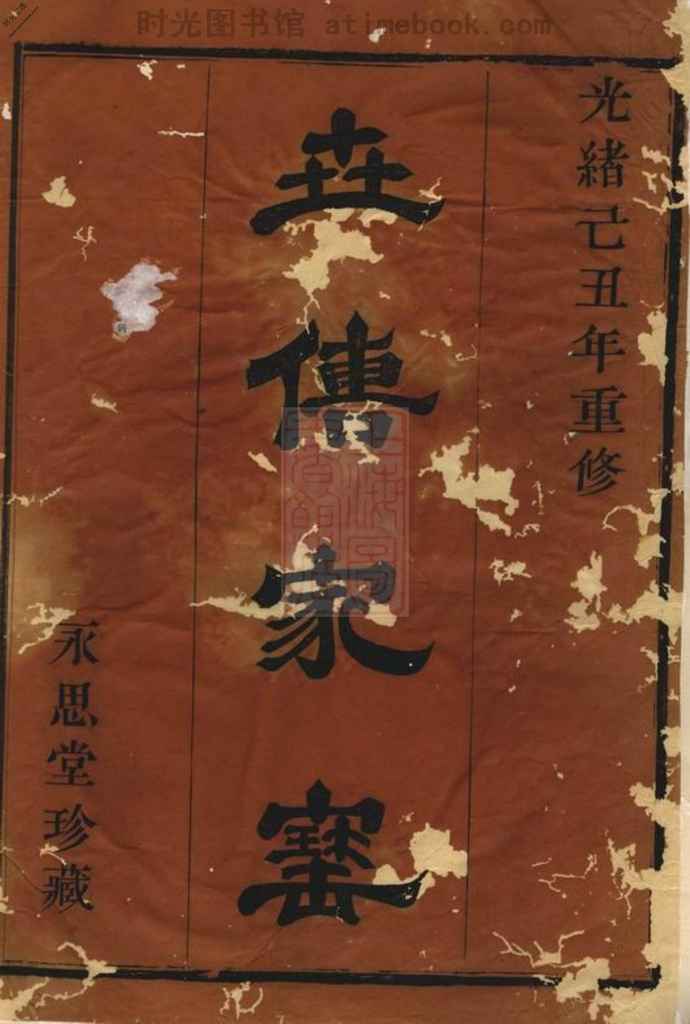 时光图书馆 atimebook.com
光緒己丑年重修
世傳家寶
永思堂珍藏